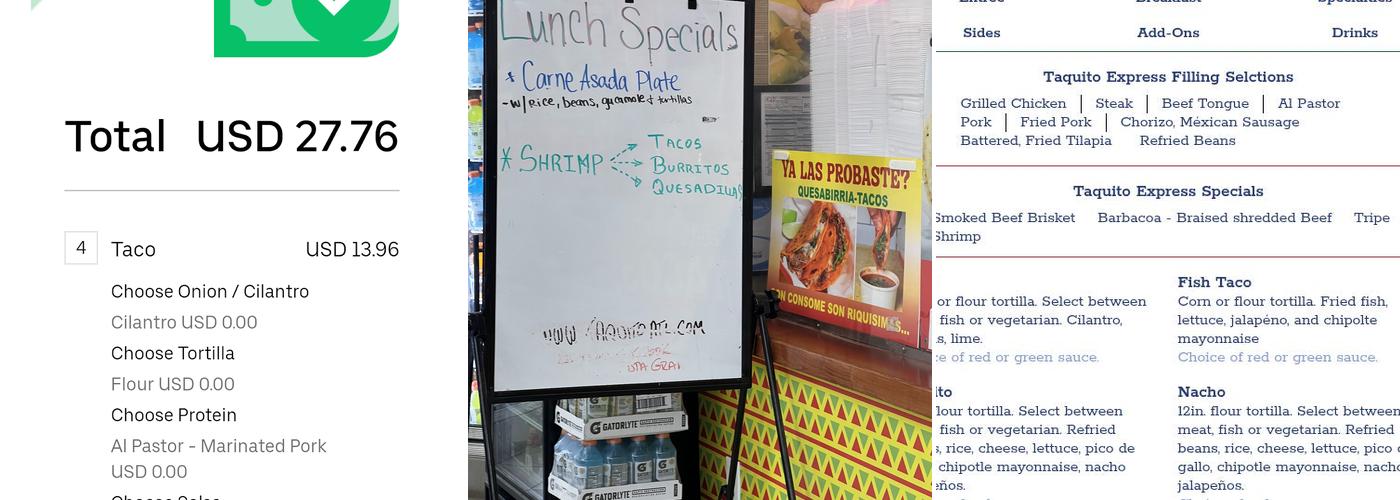 Total USD 27.76
4 Taco USD 13.96
Choose Onion / Cilantro
Cilantro USD 0.00
Choose Tortilla
Flour USD 0.00
Choose Protein
Al Pastor - Marinated Pork
USD 0.00
Lunch Specials
* Carne Asada Plate
- w/ Rice, beans, guacamole & tortillas
* SHRIMP
TACOS
BURRITOS
QUESADILLAS
YA LAS PROBASTE?
QUESABIRRIA-TACOS
CON CONSOME SON RIQUISIMAS...
GATORLYTE
GATORLYTE
Sides Add-Ons Drinks
Taquito Express Filling Selctions
Grilled Chicken | Steak | Beef Tongue | Al Pastor
Pork | Fried Pork | Chorizo, Méxican Sausage
Battered, Fried Tilapia Refried Beans
Taquito Express Specials
Smoked Beef Brisket Barbacoa - Braised shredded Beef Tripe
Shrimp
or flour tortilla. Select between
fish or vegetarian. Cilantro,
s, lime.
ce of red or green sauce.
ito
flour tortilla. Select between
, fish or vegetarian. Refried
s, rice, cheese, lettuce, pico de
chipotle mayonnaise, nacho
eños.
Fish Taco
Corn or flour tortilla. Fried fish,
lettuce, jalapéno, and chipolte
mayonnaise
Choice of red or green sauce.
Nacho
12in. flour tortilla. Select between
meat, fish or vegetarian. Refried
beans, rice, cheese, lettuce, pico
gallo, chipotle mayonnaise, nacho
jalapeños.